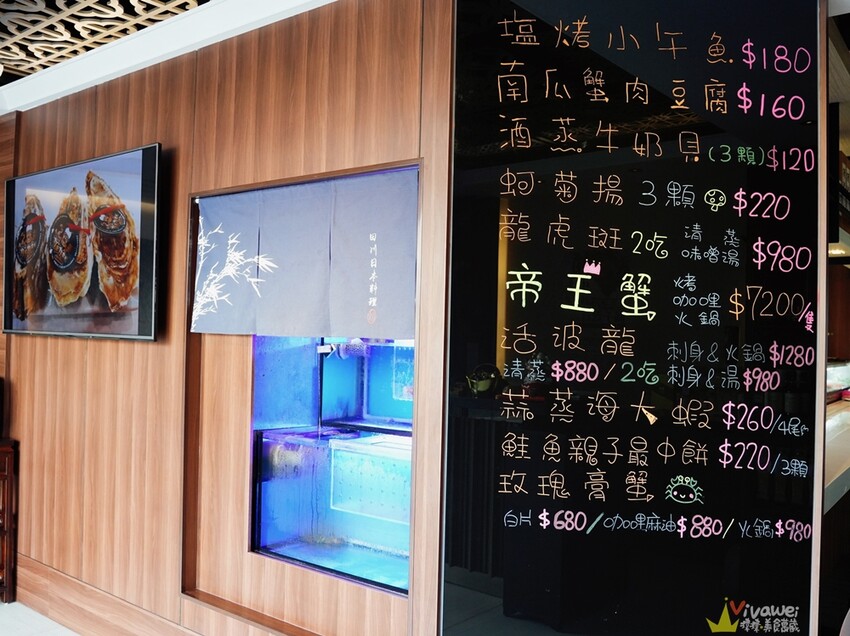 塩烤小午魚 $180
南瓜蟹肉豆腐 $160
酒蒸牛奶貝(3顆)$120
蚵菊揚3顆 $220
龍虎斑2吃 清蒸 味噌湯 $980
帝王蟹 烤 咖哩 火鍋 $7200/隻
活波龍 刺身&火鍋 $1280
清蒸 $880/2吃 刺身&湯 $980
蒜蒸海大蝦 $260/4尾
鮭魚親子最中餅 $220/3顆
玫瑰膏蟹
白片 $680/咖哩麻油 $880/火鍋 $980
田川日本料理
Vivawei